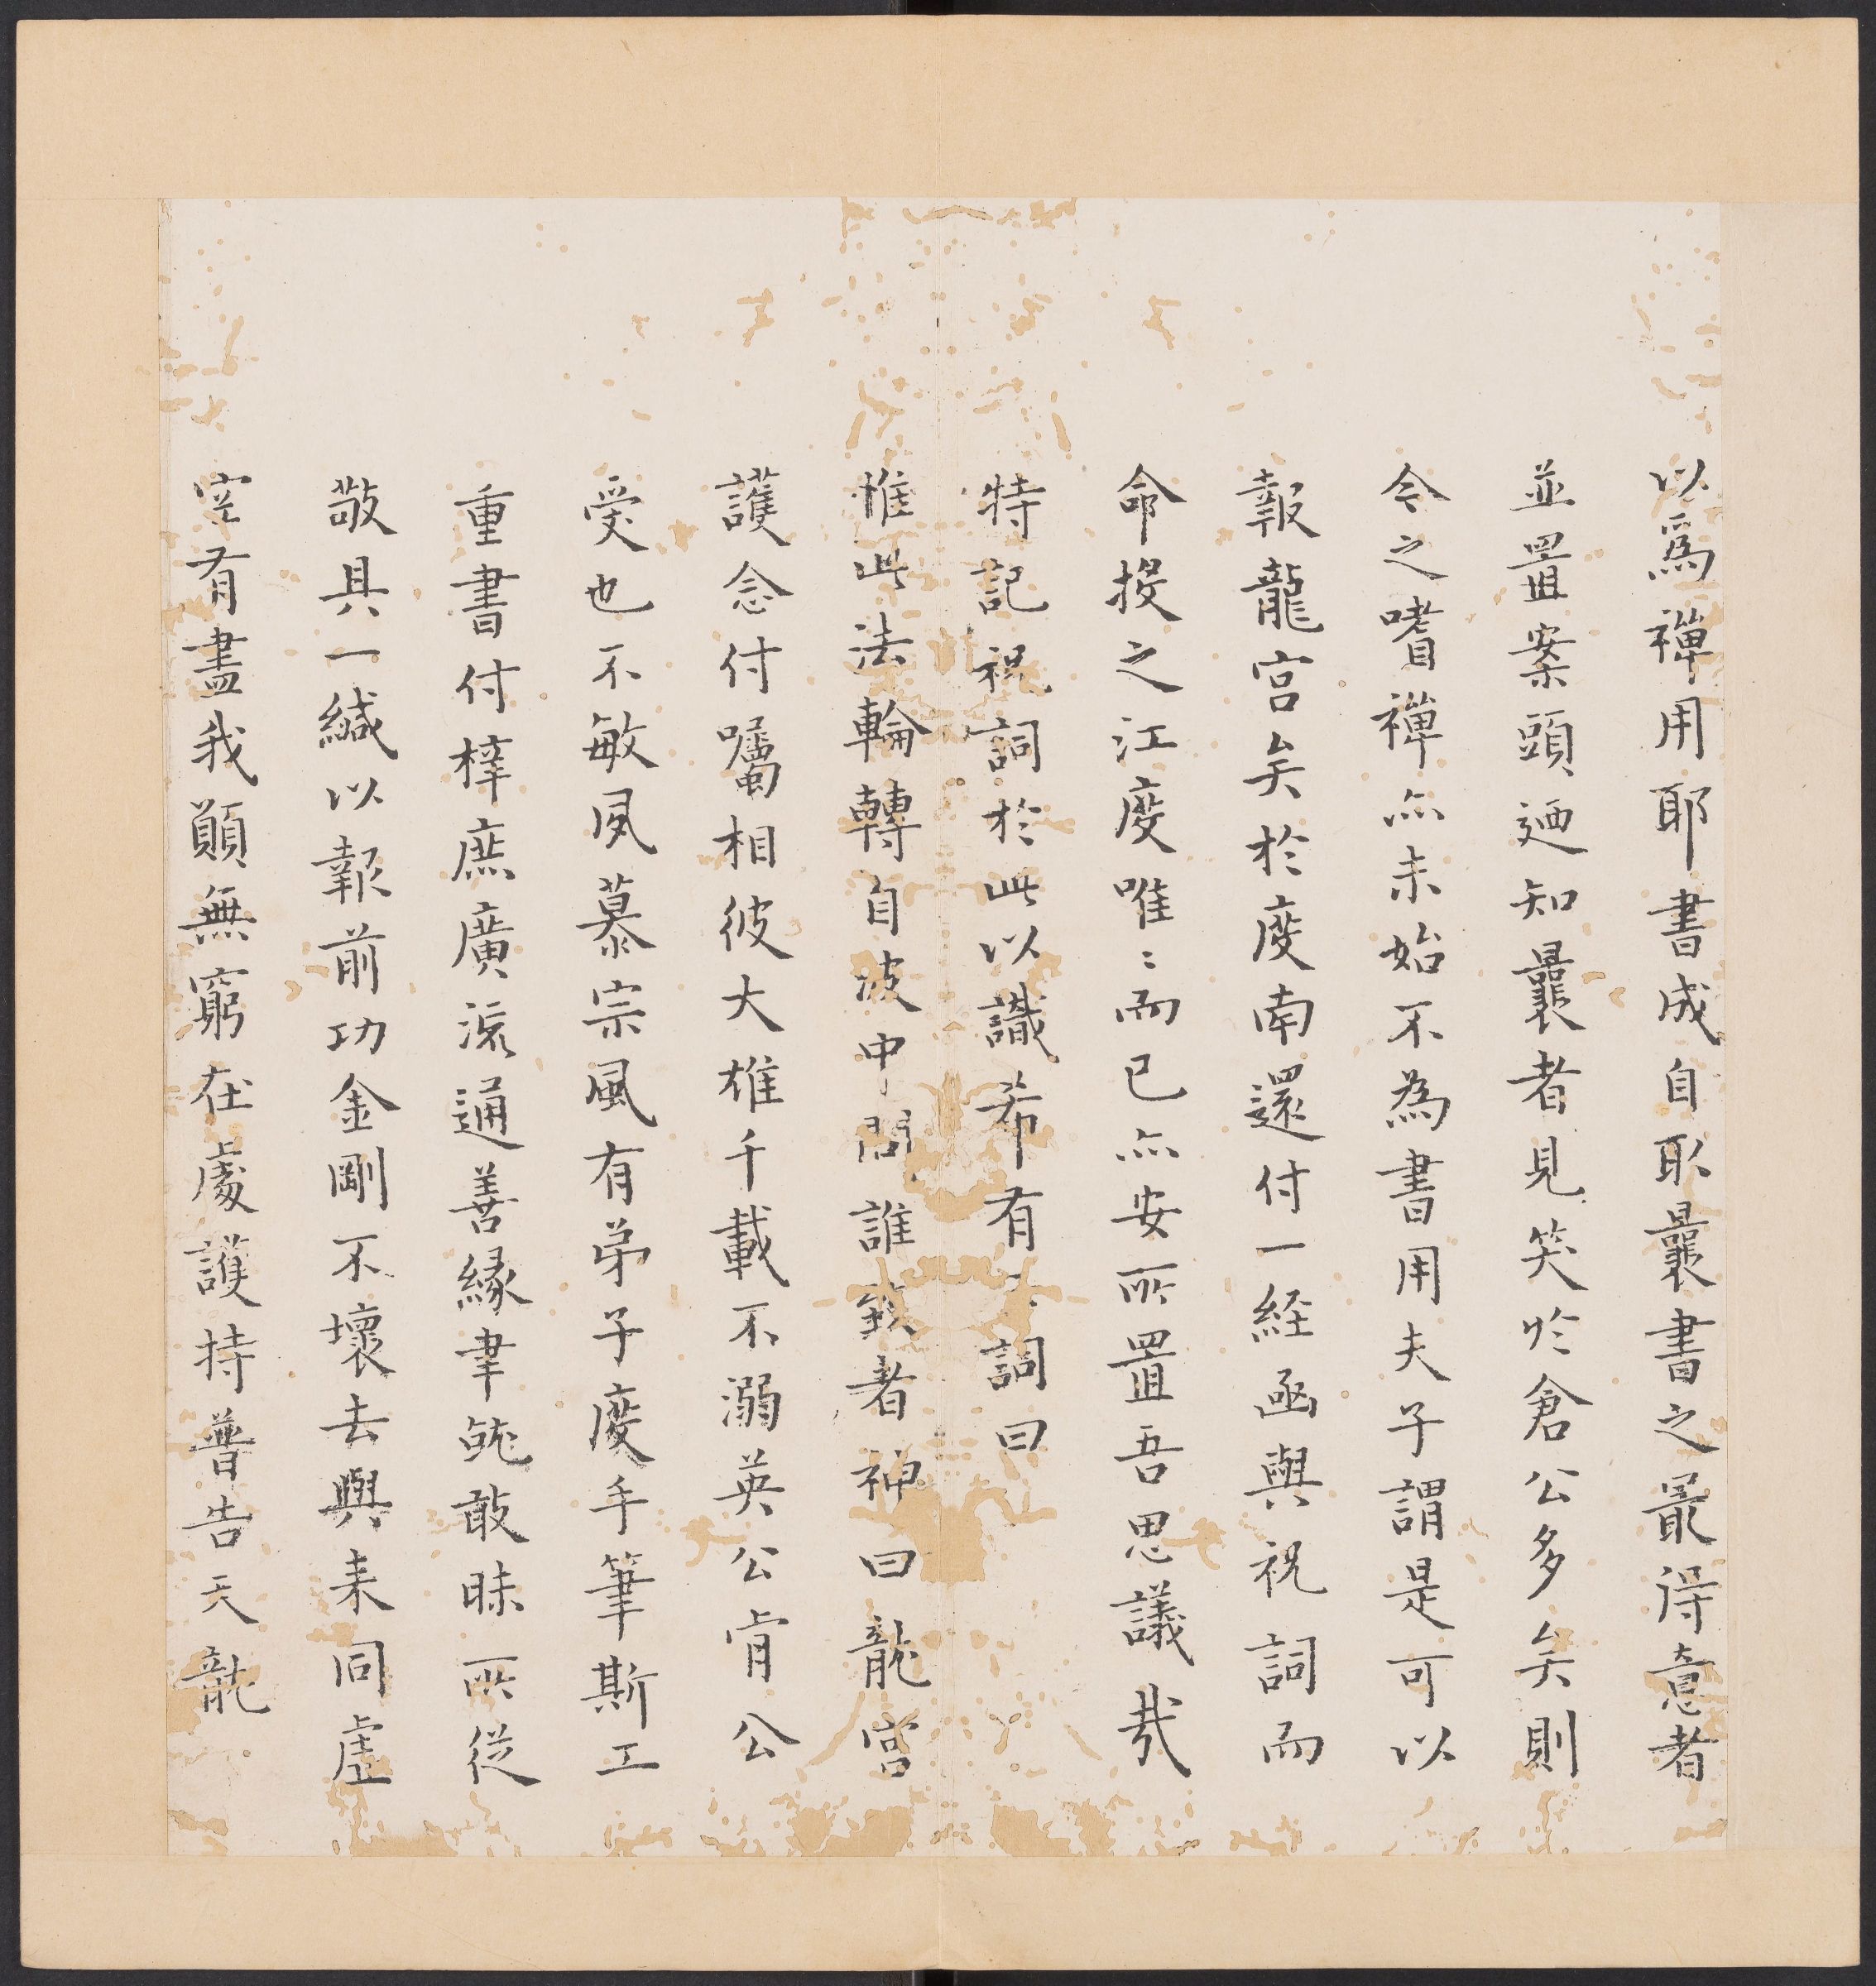 以爲禪用耶書成自取曩書之最得意者
並置案頭迺知曩者見笑於倉公多矣則
今之嗜禪亦未始不為書用夫子謂是可以
報龍宮矣於度南還付一經函與祝詞而
命投之江度唯〻而已亦安所置吾思議哉
特記祝詞於此以識希有〻詞曰
惟此法輪轉自波中問誰致者神曰龍宮
護念付囑相彼大雄千載不溺英公肯公
受也不敏夙慕宗風有弟子度手筆斯工
重書付梓庶廣流通善緣聿既敢昧所從
敬具一緘以報前功金剛不壞去與来同虛
空有盡我願無窮在處護持普告天龍